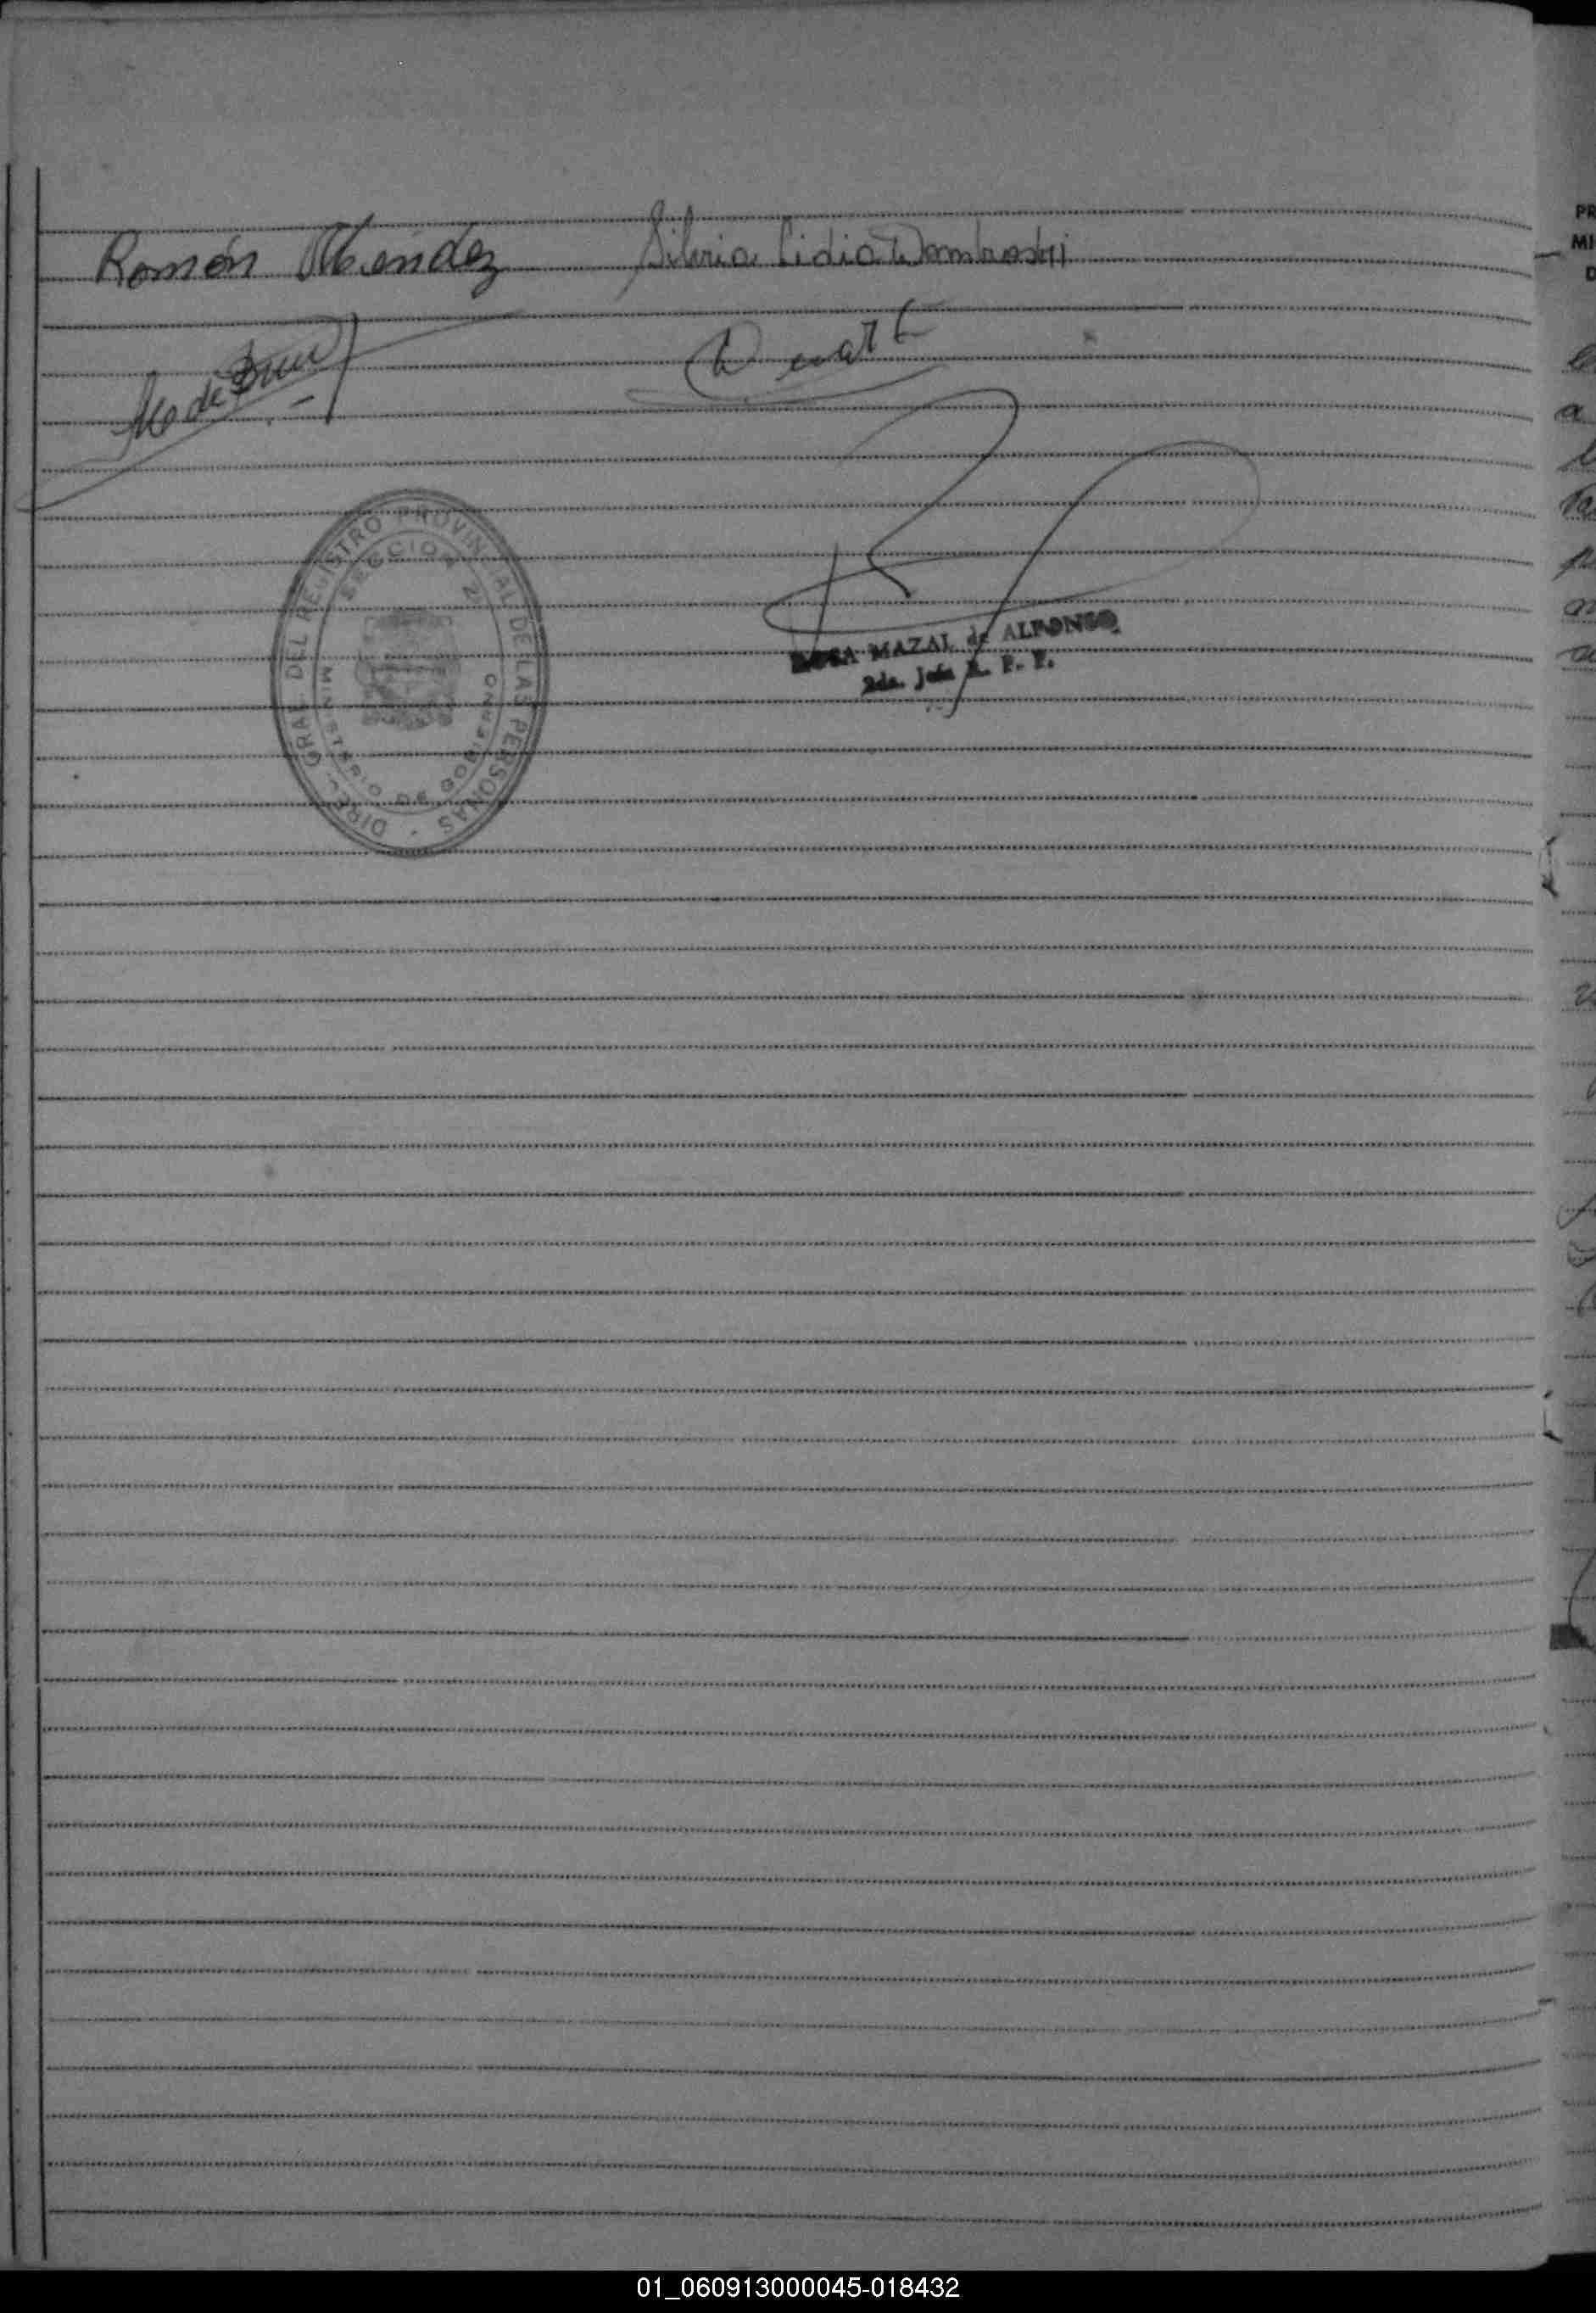 Ramón Méndez Silvia Lidia
Duart
DIREC. GRAL. DEL REGISTRO PROVINCIAL DE LAS PERSONAS
SECCION 2
MINISTERIO DE GOBIERNO
ROSA MAZAL de ALFONSO
2da. Jefa R. P. P.
PR
MI
D
01_060913000045-018432